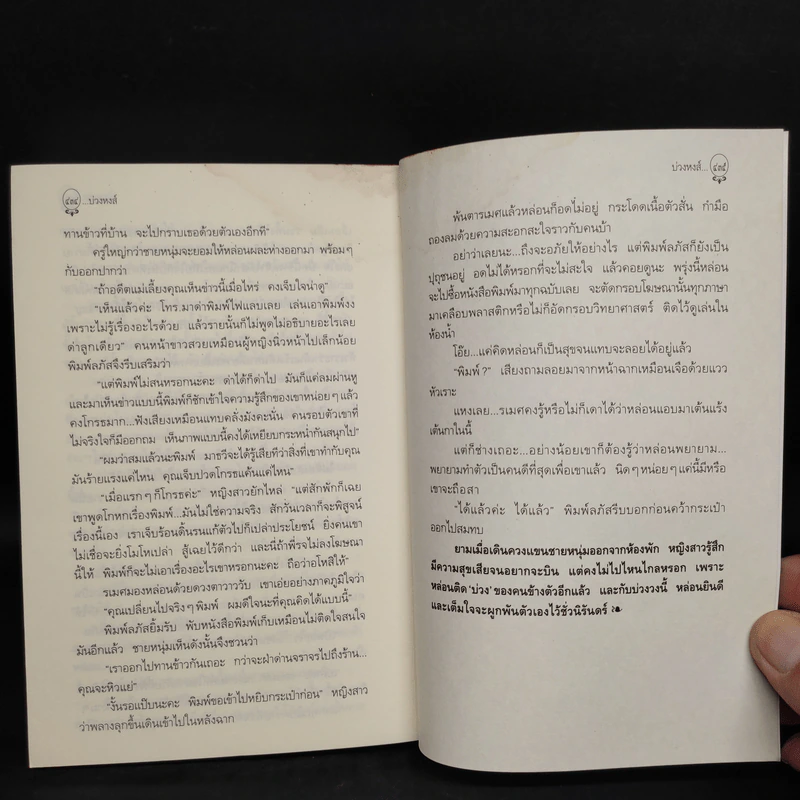 ๔๓๔ ...บ่วงหงส์
ทานข้าวที่บ้าน จะไปกราบเธอด้วยตัวเองอีกที"
ครู่ใหญ่กว่าชายหนุ่มจะยอมให้หล่อนผละห่างออกมา พร้อมๆ
กับออกปากว่า
"ถ้าอดีตแม่เลี้ยงคุณเห็นข่าวนี้เมื่อไหร่ คงเจ็บใจน่าดู"
"เห็นแล้วค่ะ โทร.มาด่าพิมพ์ไฟแลบเลย เล่นเอาพิมพ์งง
เพราะไม่รู้เรื่องอะไรด้วย แล้วรายนั้นก็ไม่พูดไม่อธิบายอะไรเลย
ด่าลูกเดียว" คนหน้าขาวสวยเหมือนผู้หญิงนิ่วหน้าไปเล็กน้อย
พิมพ์ลภัสจึงรีบเสริมว่า
"แต่พิมพ์ไม่สนหรอกนะคะ ด่าได้ก็ด่าไป มันก็แค่ลมผ่านหู
และมาเห็นข่าวแบบนี้พิมพ์ก็ชักเข้าใจความรู้สึกของเขาหน่อยๆ แล้ว
คงโกรธมาก...ฟังเสียงเหมือนแทบคลั่งมังคะนั่น คนรอบตัวเขาที่
ไม่จริงใจก็มีออกถม เห็นภาพแบบนี้คงได้เหยียบกระหน่ำกันสนุกไป"
"ผมว่าสมแล้วนะพิมพ์ มาชวีจะได้รู้เสียทีว่าสิ่งที่เขาทำกับคุณ
มันร้ายแรงแค่ไหน คุณเจ็บปวดโกรธแค้นแค่ไหน"
"เมื่อแรกๆ ก็โกรธค่ะ" หญิงสาวยักไหล่ "แต่สักพักก็เฉย
เขาพูดโกหกเรื่องพิมพ์...มันไม่ใช่ความจริง สักวันเวลาก็จะพิสูจน์
เรื่องนี้เอง เราเจ็บร้อนดิ้นรนแก้ตัวไปก็เปล่าประโยชน์ ยิ่งคนเขา
ไม่เชื่อจะยิ่งโมโหเปล่า สู้เฉยไว้ดีกว่า และนี่ถ้าพี่รจไม่ลงโฆษณา
นี้ให้ พิมพ์ก็จะไม่เอาเรื่องอะไรเขาหรอกนะคะ ถือว่าอโหสิให้"
รเมศมองหล่อนด้วยดวงตาวาววับ เขาเอ่ยอย่างภาคภูมิใจว่า
"คุณเปลี่ยนไปจริงๆ พิมพ์ ผมดีใจนะที่คุณคิดได้แบบนี้"
พิมพ์ลภัสยิ้มรับ พับหนังสือพิมพ์เก็บเหมือนไม่ติดใจสนใจ
มันอีกแล้ว ชายหนุ่มเห็นดังนั้นจึงชวนว่า
"เราออกไปทานข้าวกันเถอะ กว่าจะฝ่าด่านจราจรไปถึงร้าน...
คุณจะหิวแย่"
"งั้นรอแป๊บนะคะ พิมพ์ขอเข้าไปหยิบกระเป๋าก่อน" หญิงสาว
ว่าพลางลุกขึ้นเดินเข้าไปในหลังฉาก
บ่วงหงส์... ๔๓๕
พ้นตารเมศแล้วหล่อนก็อดไม่อยู่ กระโดดเนื้อตัวสั่น กำมือ
ถองลมด้วยความสะอกสะใจราวกับคนบ้า
อย่าว่าเลยนะ...ถึงจะอภัยให้อย่างไร แต่พิมพ์ลภัสก็ยังเป็น
ปุถุชนอยู่ อดไม่ได้หรอกที่จะไม่สะใจ แล้วคอยดูนะ พรุ่งนี้หล่อน
จะไปซื้อหนังสือพิมพ์มาทุกฉบับเลย จะตัดกรอบโฆษณานั้นทุกภาษา
มาเคลือบพลาสติกหรือไม่ก็อัดกรอบวิทยาศาสตร์ ติดไว้ดูเล่นใน
ห้องน้ำ
โอ๊ย...แค่คิดหล่อนก็เป็นสุขจนแทบจะลอยได้อยู่แล้ว
"พิมพ์?" เสียงถามลอยมาจากหน้าฉากเหมือนเจือด้วยแวว
หัวเราะ
แหงเลย...รเมศคงรู้หรือไม่ก็เดาได้ว่าหล่อนแอบมาเต้นแร้ง
เต้นกาในนี้
แต่ก็ช่างเถอะ...อย่างน้อยเขาก็ต้องรู้ว่าหล่อนพยายาม...
พยายามทำตัวเป็นคนดีที่สุดเพื่อเขาแล้ว นิดๆ หน่อยๆ แค่นี้มีหรือ
เขาจะถือสา
"ได้แล้วค่ะ ได้แล้ว" พิมพ์ลภัสรีบบอกก่อนคว้ากระเป๋า
ออกไปสมทบ
ยามเมื่อเดินควงแขนชายหนุ่มออกจากห้องพัก หญิงสาวรู้สึก
มีความสุขเสียจนอยากจะบิน แต่คงไม่ไปไหนไกลหรอก เพราะ
หล่อนติด 'บ่วง' ของคนข้างตัวอีกแล้ว และกับบ่วงวงนี้ หล่อนยินดี
และเต็มใจจะผูกพันตัวเองไว้ชั่วนิรันดร์